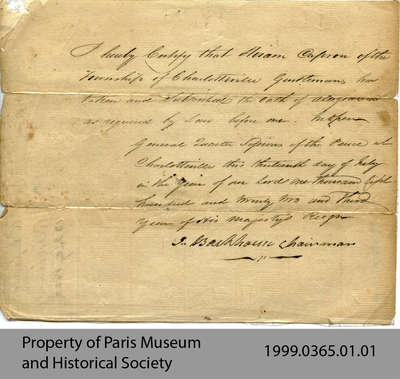 I hereby Certify that Hiram Capron of the
Township of Charlotteville Gentleman has
taken and Subscribed the oath of allegiance
as required by Law before me. In open
General Quarter Sessions of the Peace at
Charlotteville this thirteenth day of July
in the Year of our Lord one thousand Eight
hundred and twenty two and third
Year of His Majesty's Reign
J. Backhouse Chairman
Property of Paris Museum
and Historical Society
1999.0365.01.01